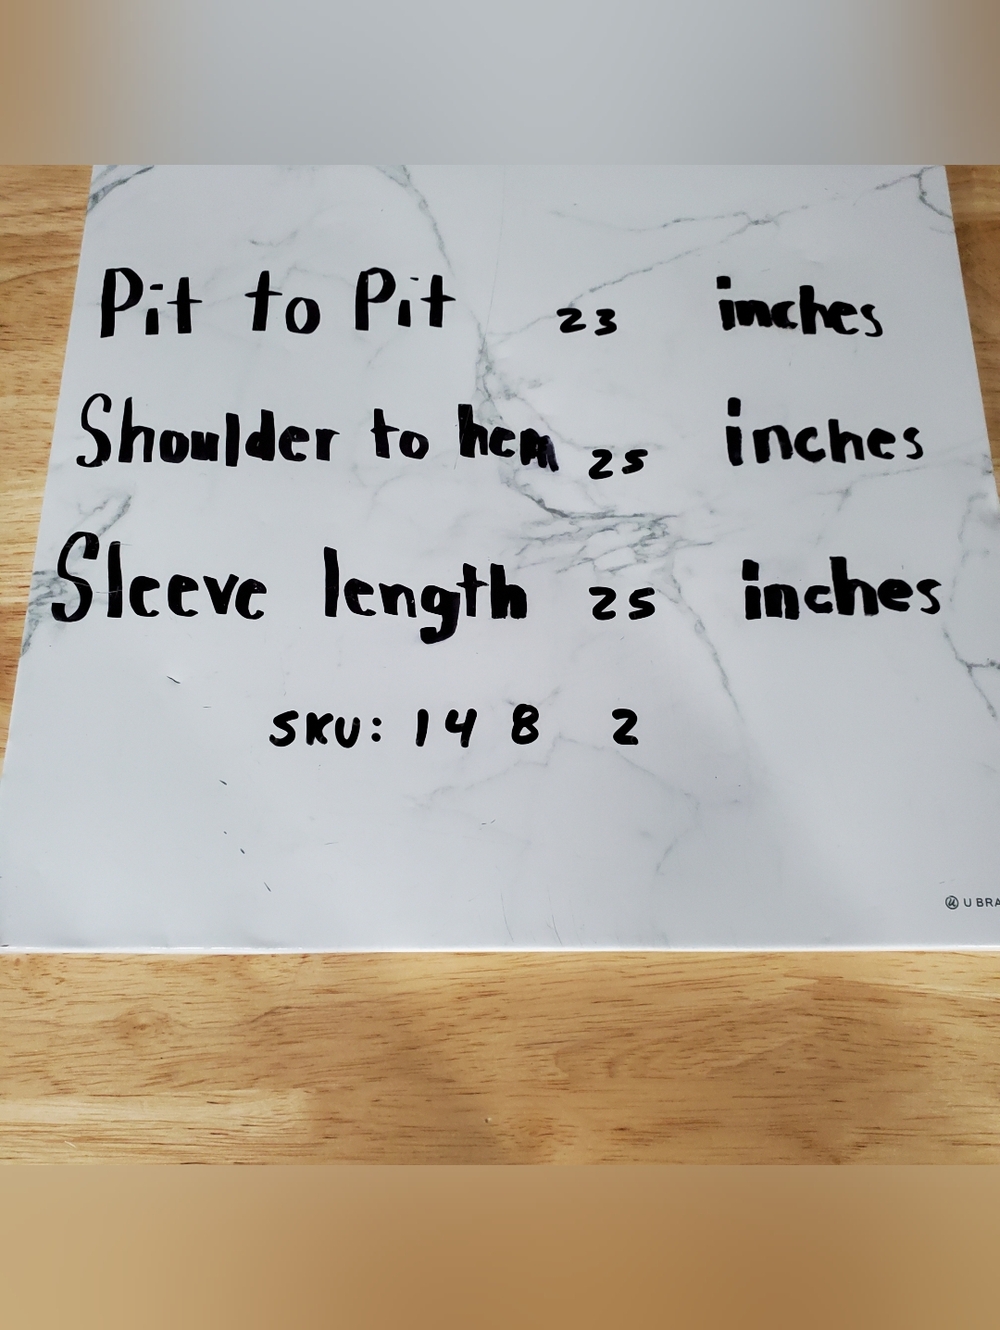 Pit to Pit 23 inches
Shoulder to hem 25 inches
Sleeve length 25 inches
SKU: 14 8 2
U BRA